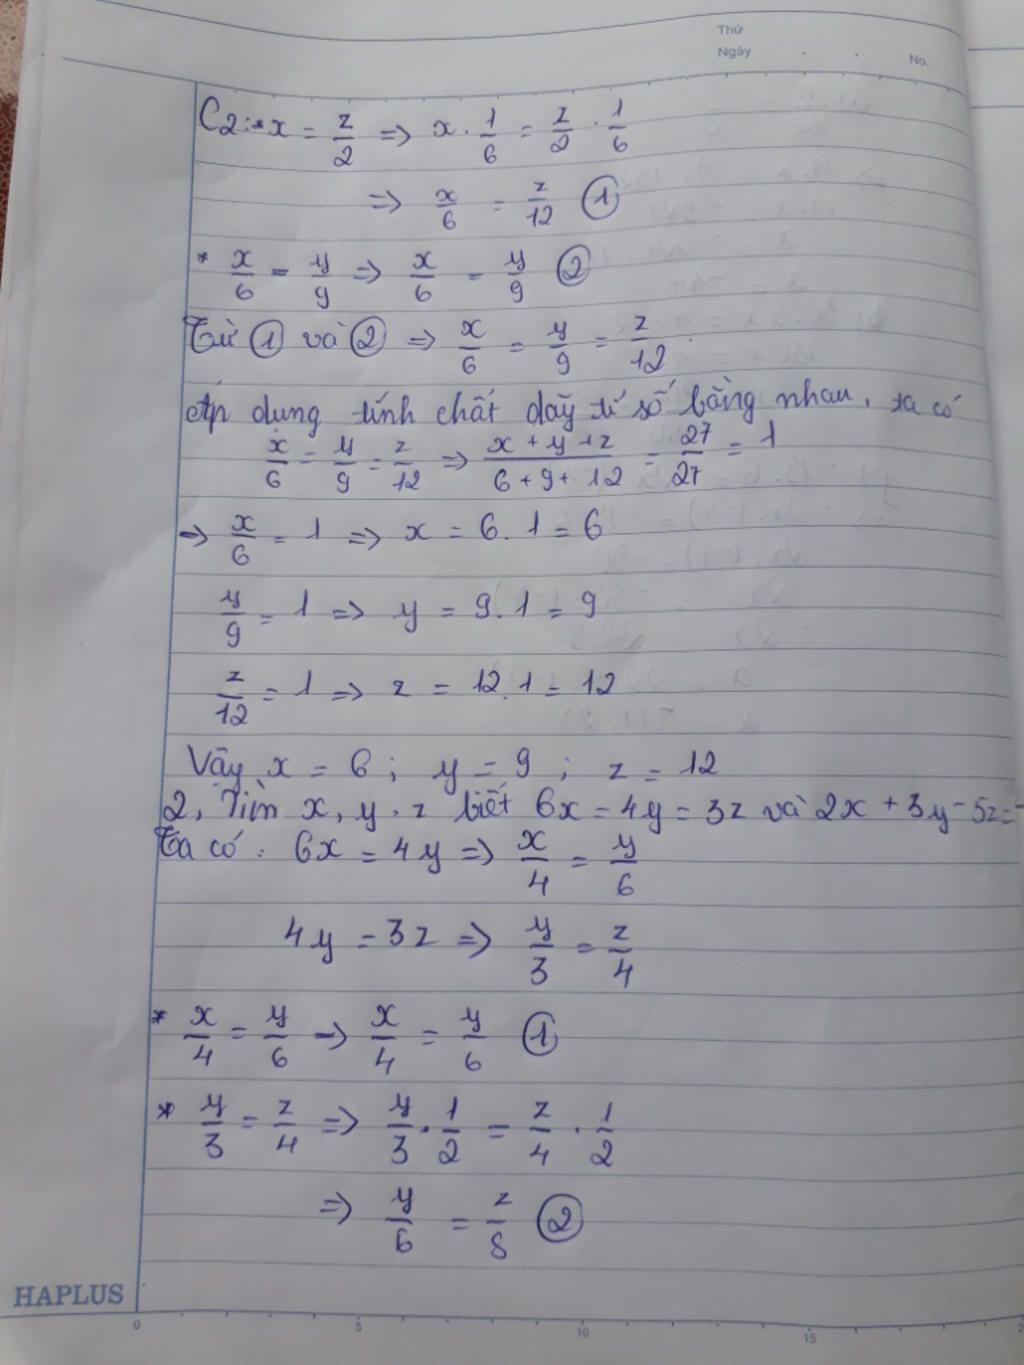 Thứ
Ngày . . No.
C2: * x = z/2 => x . 1/6 = z/2 . 1/6
=> x/6 = z/12 ①
* x/6 = y/9 => x/6 = y/9 ②
Từ ① và ② => x/6 = y/9 = z/12 .
Áp dụng tính chất dãy tỉ số bằng nhau, ta có
x/6 = y/9 = z/12 => x + y + z / 6 + 9 + 12 = 27/27 = 1
-> x/6 = 1 => x = 6 . 1 = 6
y/9 = 1 => y = 9 . 1 = 9
z/12 = 1 => z = 12 . 1 = 12
Vậy x = 6 ; y = 9 ; z = 12
2, Tìm x, y, z biết 6x = 4y = 3z và 2x + 3y - 5z =
Ta có : 6x = 4y => x/4 = y/6
4y = 3z => y/3 = z/4
* x/4 = y/6 -> x/4 = y/6 ①
* y/3 = z/4 => y/3 . 1/2 = z/4 . 1/2
=> y/6 = z/8 ②
HAPLUS
0 5 10 15